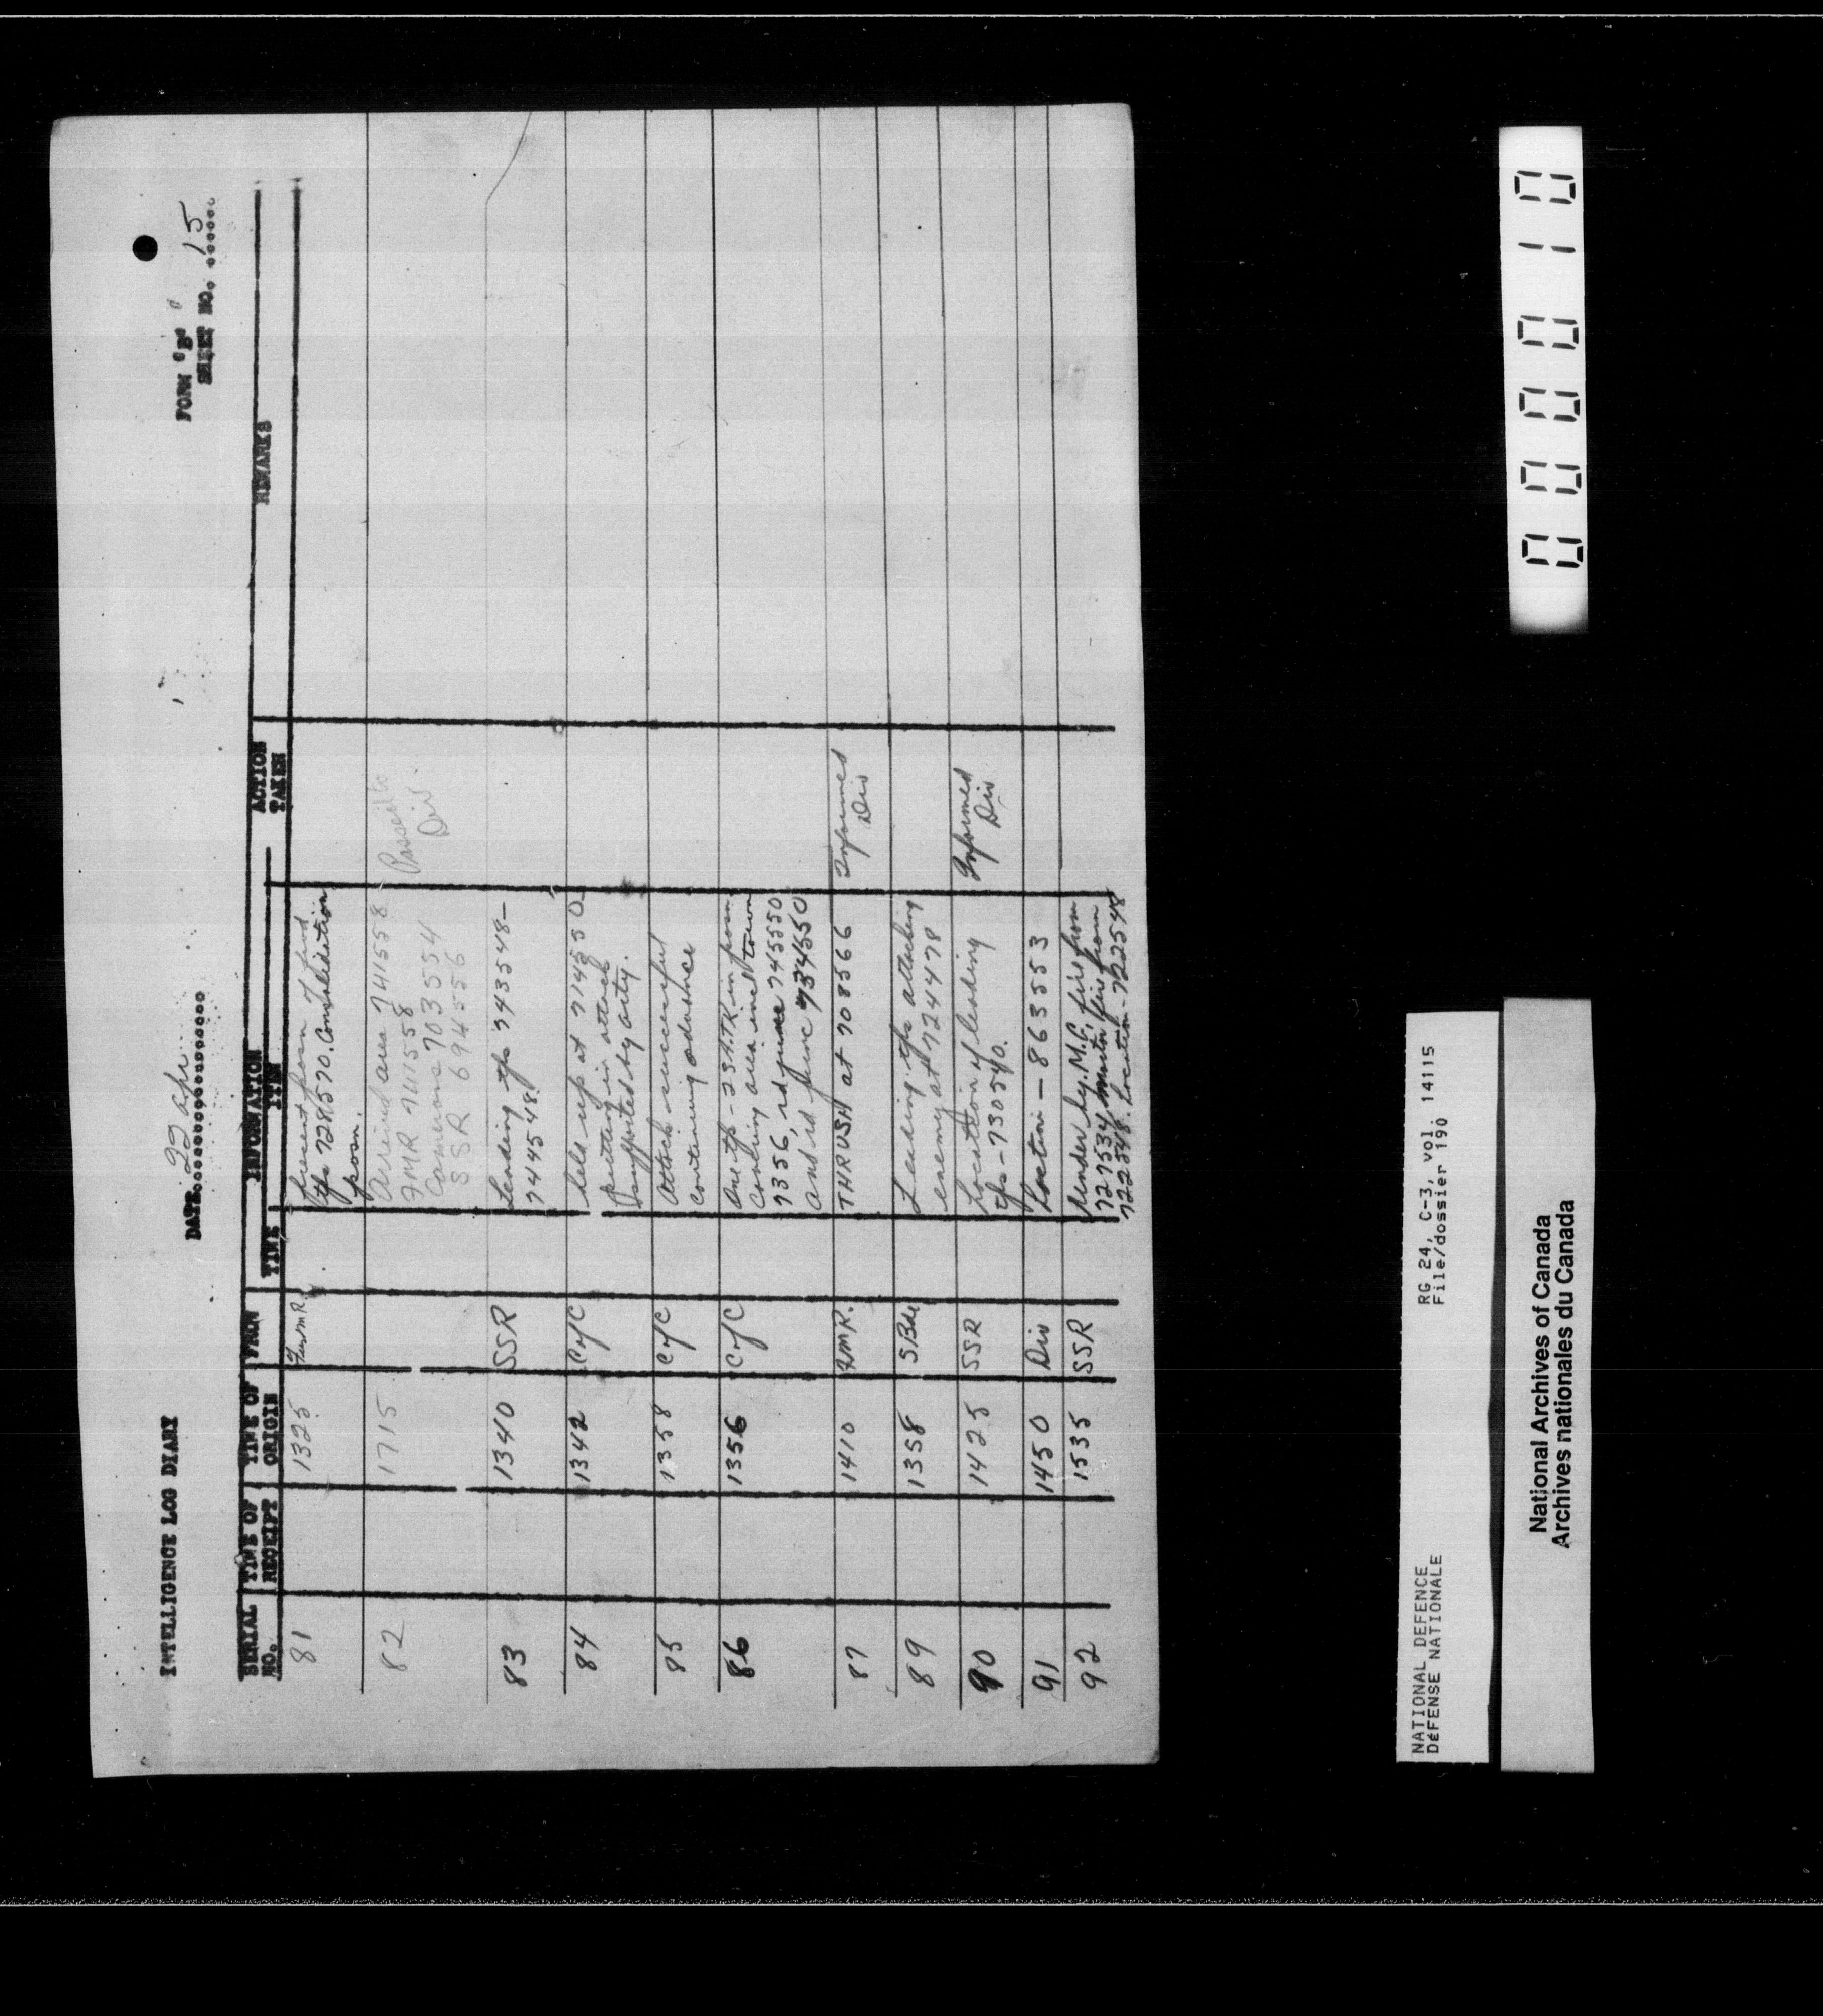 INTELLIGENCE LOG DIARY
DATE 22 Apr
FORM "B"
SHEET NO. 15
SERIAL NO. TIME OF RECEIPT TIME OF ORIGIN FROM INFORMATION TIME ITEM ACTION TAKEN REMARKS
81 1325 Fus MR. present posn of fwd
tps 728570. Consolidation
posn.
82 1715 Arrived area 741558 Passed to
FMR 741558 Div.
Camerons 703554
SSR 694556
83 1340 SSR Leading tps 743548-
744548.
84 1342 C of C held up at 714550
putting in attack
supported by arty.
85 1358 C of C Attack successful
continuing advance
86 1356 C of C One tp - 2 S.A.TK in posn
covering area incl town
7356, rd junc 745550
and rd junc 734550
87 1410 FMR. THRUSH at 708566 Informed
Div
89 1358 5 Bde Leading tps attacking
enemy at 724478
90 1425 SSR Location of leading Informed
tps - 730540. Div
91 1450 Div Location - 8635553
92 1535 SSR Under hy. M.G. fire from
727534 mortar fire from
722548. Location - 722548
0000110
NATIONAL DEFENCE RG 24, C-3, vol. 14115
DéFENSE NATIONALE File/dossier 190
National Archives of Canada
Archives nationales du Canada